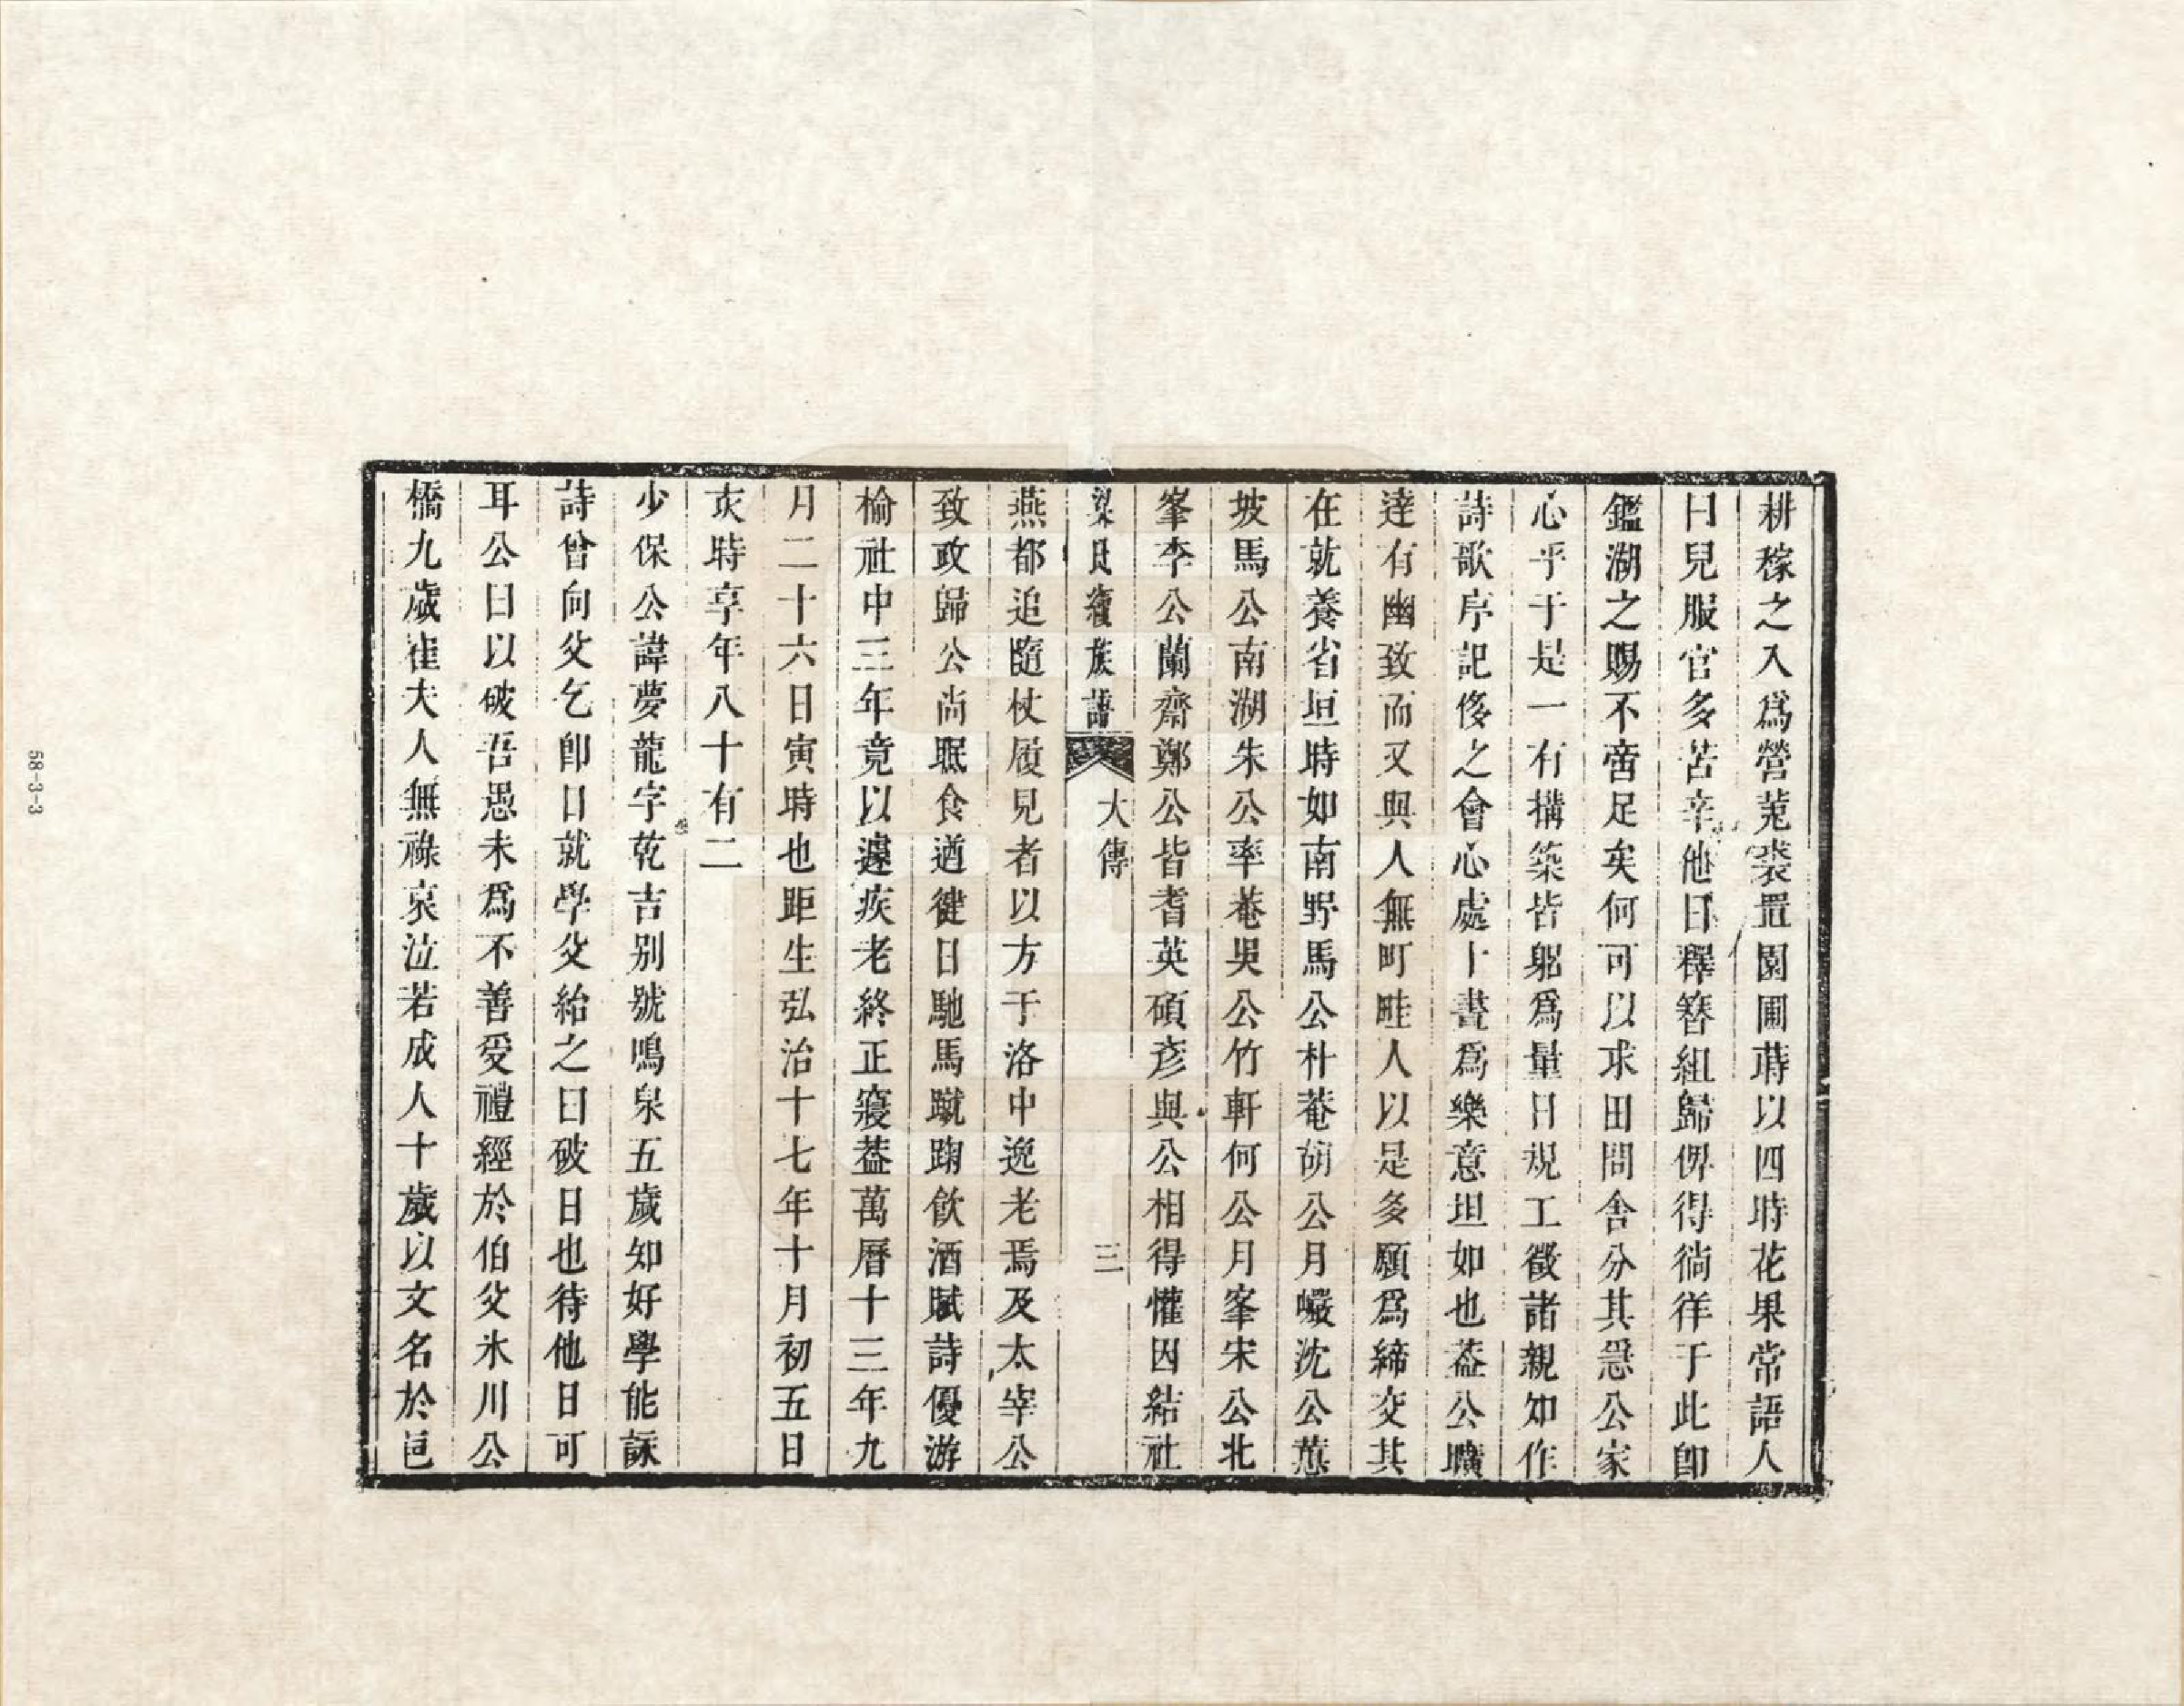 耕稼之入爲營菟裘置園圃蒔以四時花果常語人
曰兒服官多苦辛他日釋簪組歸俾得徜徉于此卽
鑑湖之賜不啻足矣何可以求田問舍分其慐公家
心乎于是一有搆築皆躬爲量日規工徵諸親知作
詩歌序記侈之會心處卜晝爲樂意坦如也葢公曠
達有幽致而又與人無町畦人以是多願爲締交其
在就養省垣時如南野馬公朴菴胡公月巖沈公蕙
坡馬公南湖朱公率菴吳公竹軒何公月峯宋公北
峯李公蘭齋鄭公皆耆英碩彥與公相得懽因結社
梁氏續族譜 大傳 三
燕都追隨杖履見者以方于洛中逸老焉及太宰公
致政歸公尚眠食逌健日馳馬蹴踘飲酒賦詩優游
榆社中三年竟以遘疾老終正寢葢萬曆十三年九
月二十六日寅時也距生弘治十七年十月初五日
亥時享年八十有二
少保公諱夢龍字乾吉別號鳴泉五歲知好學能詠
詩曾向父乞卽日就學父紿之曰破日也待他日可
耳公曰以破吾愚未爲不善受禮經於伯父氷川公
橋九歲崔夫人無祿哀泣若成人十歲以文名於邑
58-3-3